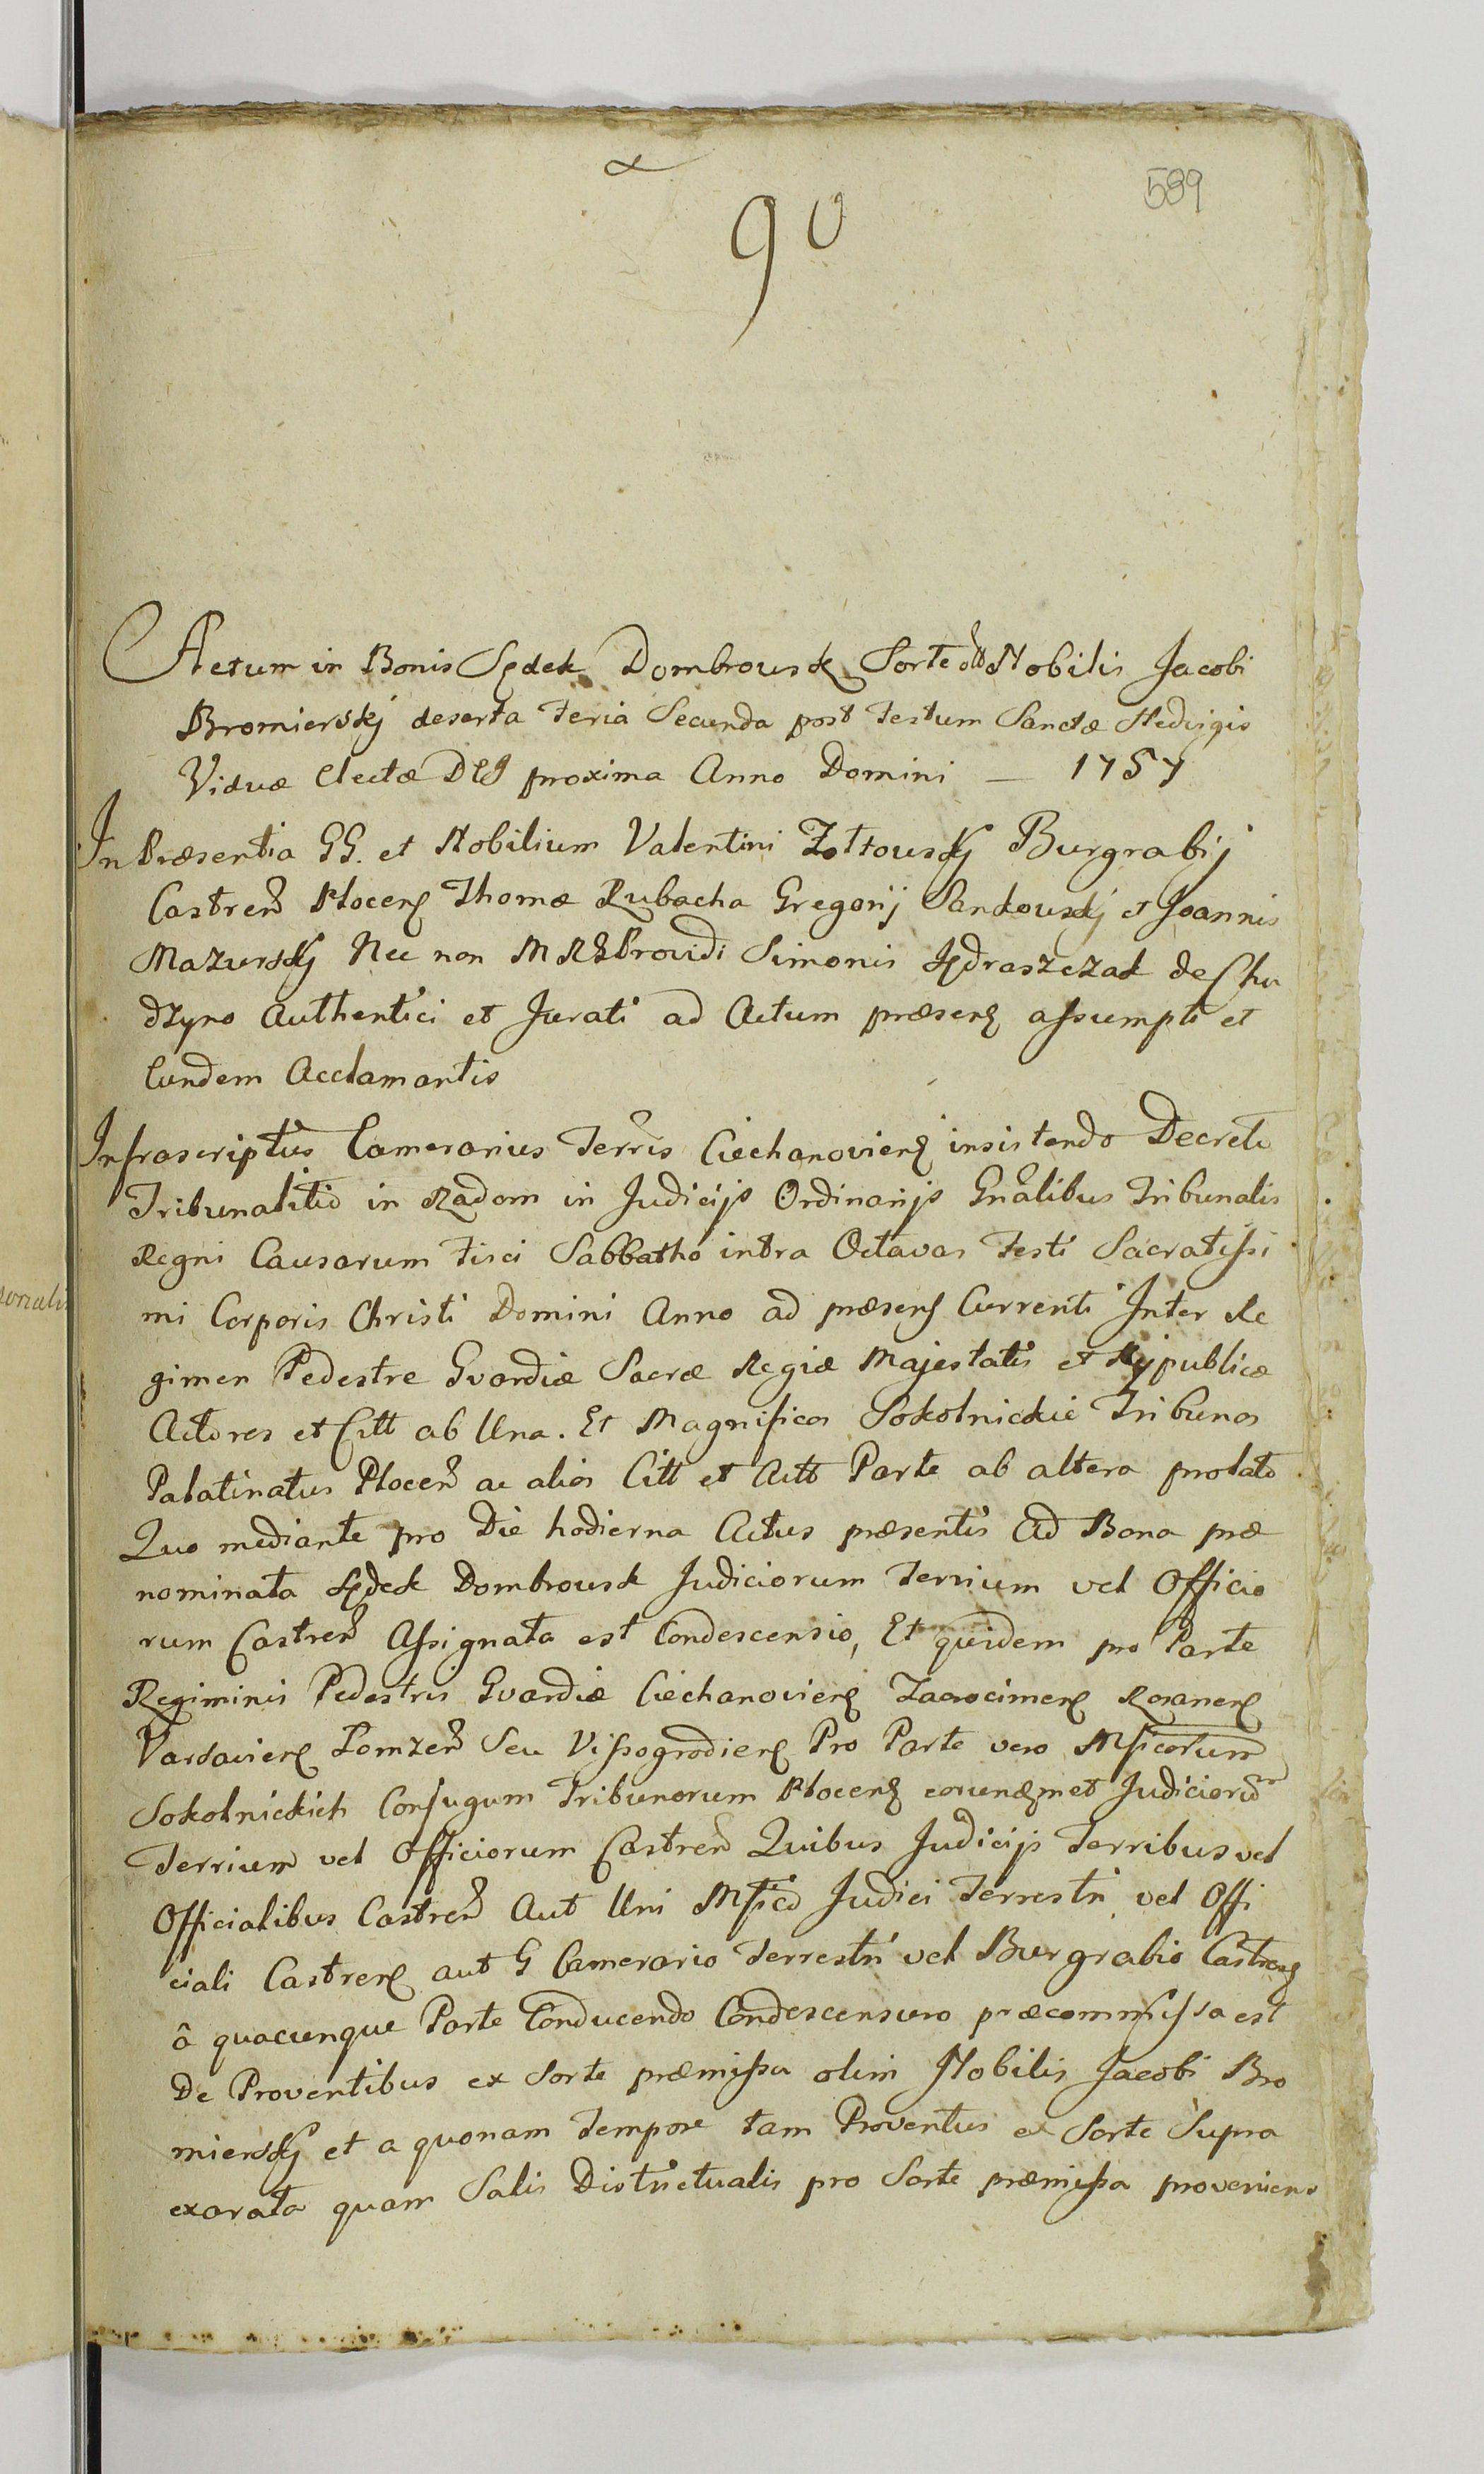 589
90
Actum in Bonis Sędek Dombrowsk Sorte olt Nobilis Jacobi
Bromierskj deserta Feria Secunda post Festum Sanctæ Hedvigis
Viduæ Electæ DEI proxima Anno Domini — 1757
In Præsentia GG. et Nobilium Valentini Zołtowskj Burgrabij
Castren Plocens Thomæ Rubacha Gregorij Sankowskj et Joannis
Mazurskj Nec non Providi Simonis Jędraszczak de Chu
dzyno Authentici et Jurati ad Actum præsens assumpti et
Eundem Acclamantis
Infrascriptus Camerarius Terris Ciechanoviens insistendo Decreto
Tribunalitio in Radom in Judicijs Ordinarijs Gnalibus Tribunalis
Regni Causarum Fisci Sabbatho intra Octavas Festi Sacratissi
mi Corporis Christi Domini Anno ad præsens Currenti Inter Re
gimen Pedestre Gvardiæ Sacræ Regiæ Majestatis et Rypublicæ
Actores et Citt ab Una. Et Magnificos Sokolnickie Tribunos
Palatinatus Plocen ac alios Citt et Actt Parte ab altera prolato
Quo mediante pro Die hodierna Actus præsentis Ad Bona præ
nominata Sędek Dombrowsk Judiciorum Terrium vel Officio
rum Castren Assignata est Condescensio, Et quidem pro Parte
Regiminis Pedestris Gvardiæ Ciechanoviens Zacrocimens Rozanens
Varsaviens Lomzen Seu Vissogrodiens Pro Parte vero Mficorum
Sokolnickich Conjugum Tribunorum Plocens eorundmet Judiciorum
Terrium vel Officiorum Castren Quibus Judicijs Terribus vel
Officialibus Castren Aut Uni Mfico Judici Terrestri vel Offi
ciali Castrens aut G Camerario Terrestri vel Burgrabio Castrens
â quacunque Parte Conducendo Condescensuro præcommissa est
De Proventibus ex Sorte præmissa olim Nobilis Jacobi Bro
mierskj et a quonam Tempore tam Proventus ex Sorte Supra
exarata quam Salis Districtualis pro Sorte præmissa proveniens